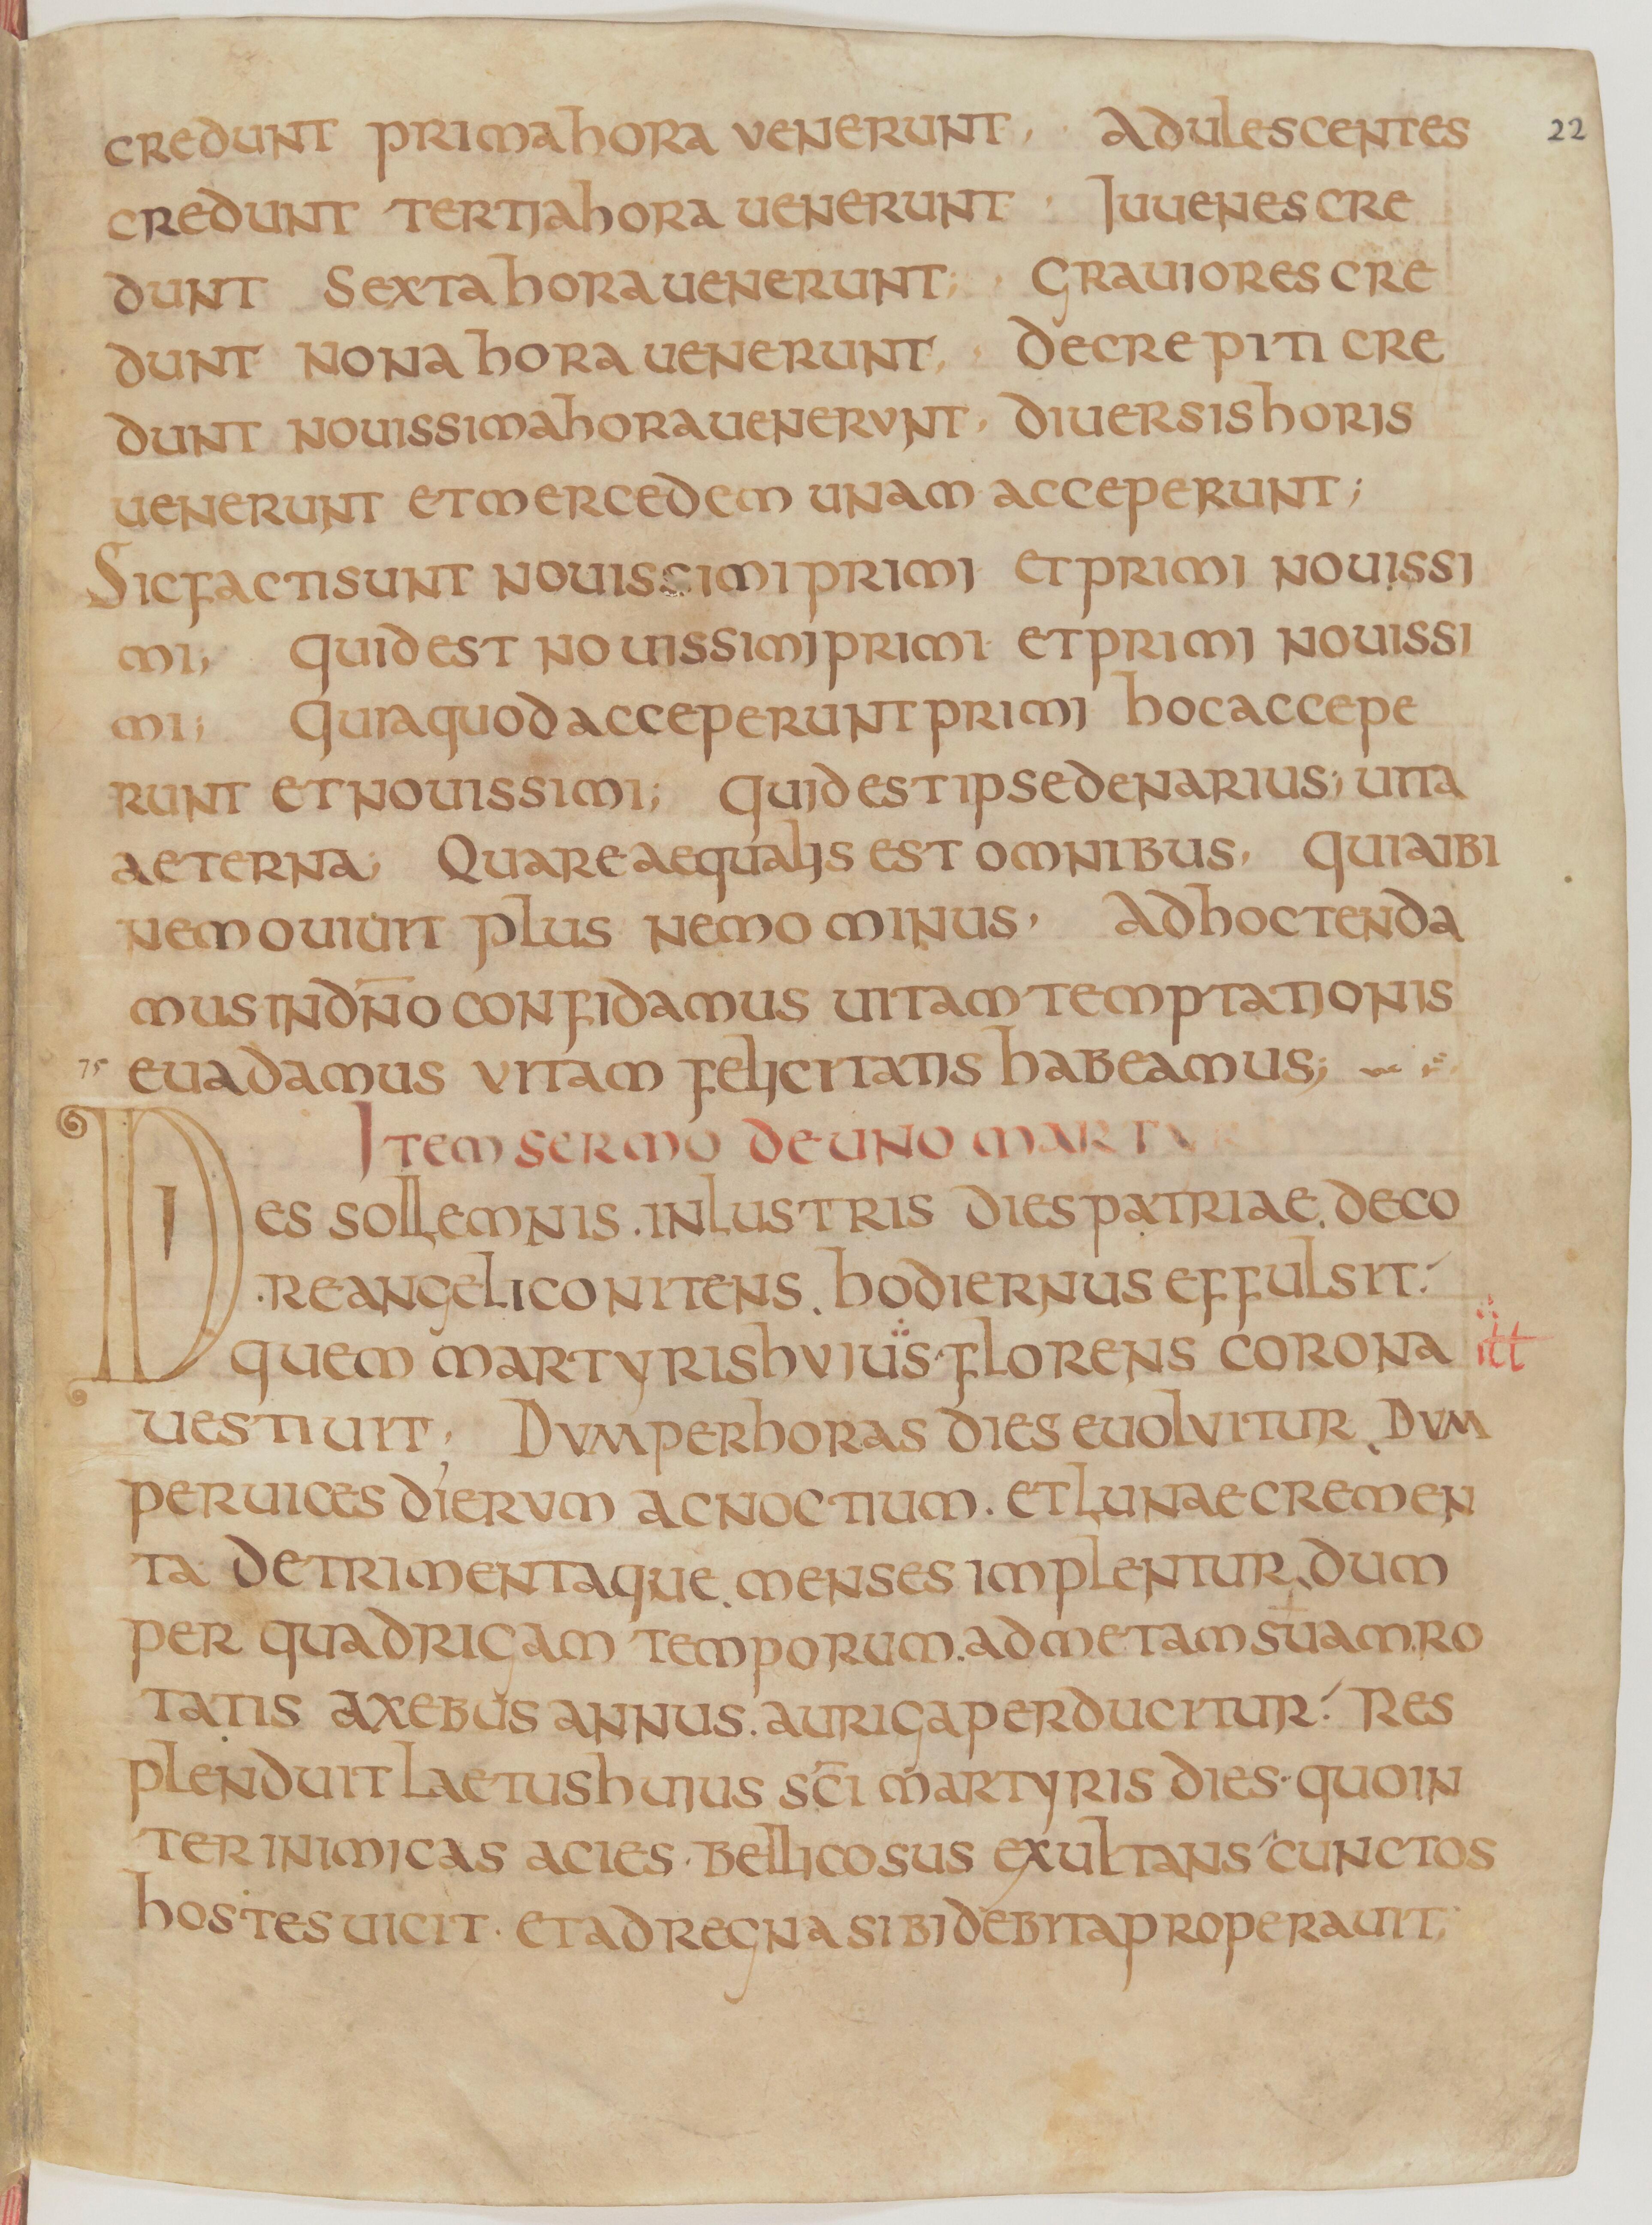 22
credunt prima hora venerunt, Adulescentes
credunt tertia hora uenerunt · Iuuenes cre
dunt Sexta hora uenerunt; Grauiores cre
dunt nona hora uenerunt, Decrepiti cre
dunt nouissima hora uenervnt, diuersis horis
uenerunt et mercedem unam acceperunt;
Sic facti sunt nouissimi primi et primi nouissi
mi, quid est nouissimi primi et primi nouissi
mi; Quia quod acceperunt primi hoc accepe
runt et nouissimi; Quid est ipse denarius; uita
aeterna; Quare aequalis est omnibus, quia ibi
nemo uiuit plus nemo minus, Ad hoc tenda
mus in dn̄o confidamus uitam temptationis
75 euadamus vitam felicitatis habeamus;
Item sermo de uno martyr
Dies sollemnis. inlustris dies patriae. deco
re angelico nitens. hodiernus effulsit:
quem martyris hvius florens corona itt
uestiuit; Dvm per horas dies euolvitur. Dvm
per uices diervm ac noctium. et lunae cremen
ta detrimentaque. menses implentur. dum
per quadrigam temporum. ad metam suam. ro
tatis axebus annus. auriga perducitur: Res
plenduit laetus huius sc̄i martyris dies · quo in
ter inimicas acies · bellicosus exultans cunctos
hostes uicit · et ad regna sibi debita properauit;